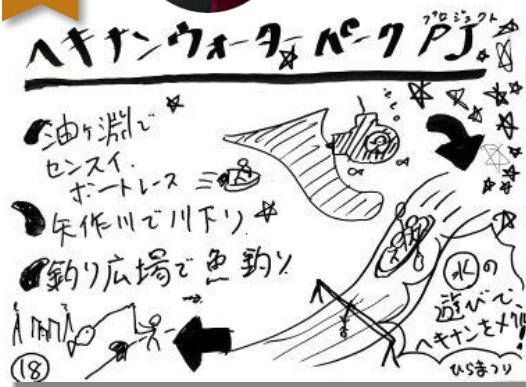 ヘキナンウォーターパーク PJ
プロジェクト
油ヶ淵で
センスイ、
ボートレース
矢作川で川下り
釣り広場で魚釣り
水の
遊びで、
ヘキナンを
ひらまつり
18